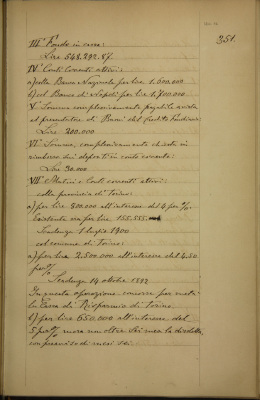 351.
III° Fondo in cassa:
Lire 548.292.87.
IV° Conti Correnti attivi:
a) colla Banca Nazionale per lire 1.500.000
b) col Banco di Napoli per lire 1.700.000
V° Somma complessivamente pagabile a vista
al presentatore di Buoni del Credito Fondiario
Lire 200.000
VI° Somma, complessivamente chiesta in
rimborso dei depositi in conto corrente:
Lire 30.000
VII° Mutui e Conti correnti attivi:
colla provincia di Torino:
a) per lire 300.000 all'interesse del 4 per %
Esistente ora per lire 155.555
Scadenza 1 luglio 1900
col comune di Torino:
a) per lire 2.500.000 all'interesse del 4.50
per %
Scadenza 14 ottobre 1892
In questa operazione concorre per metà
la Cassa di Risparmio di Torino.
b) per lire 650.000 all'interesse del
5 per % mora non oltre sei mesi la disdetta
con preavviso di mesi sei.